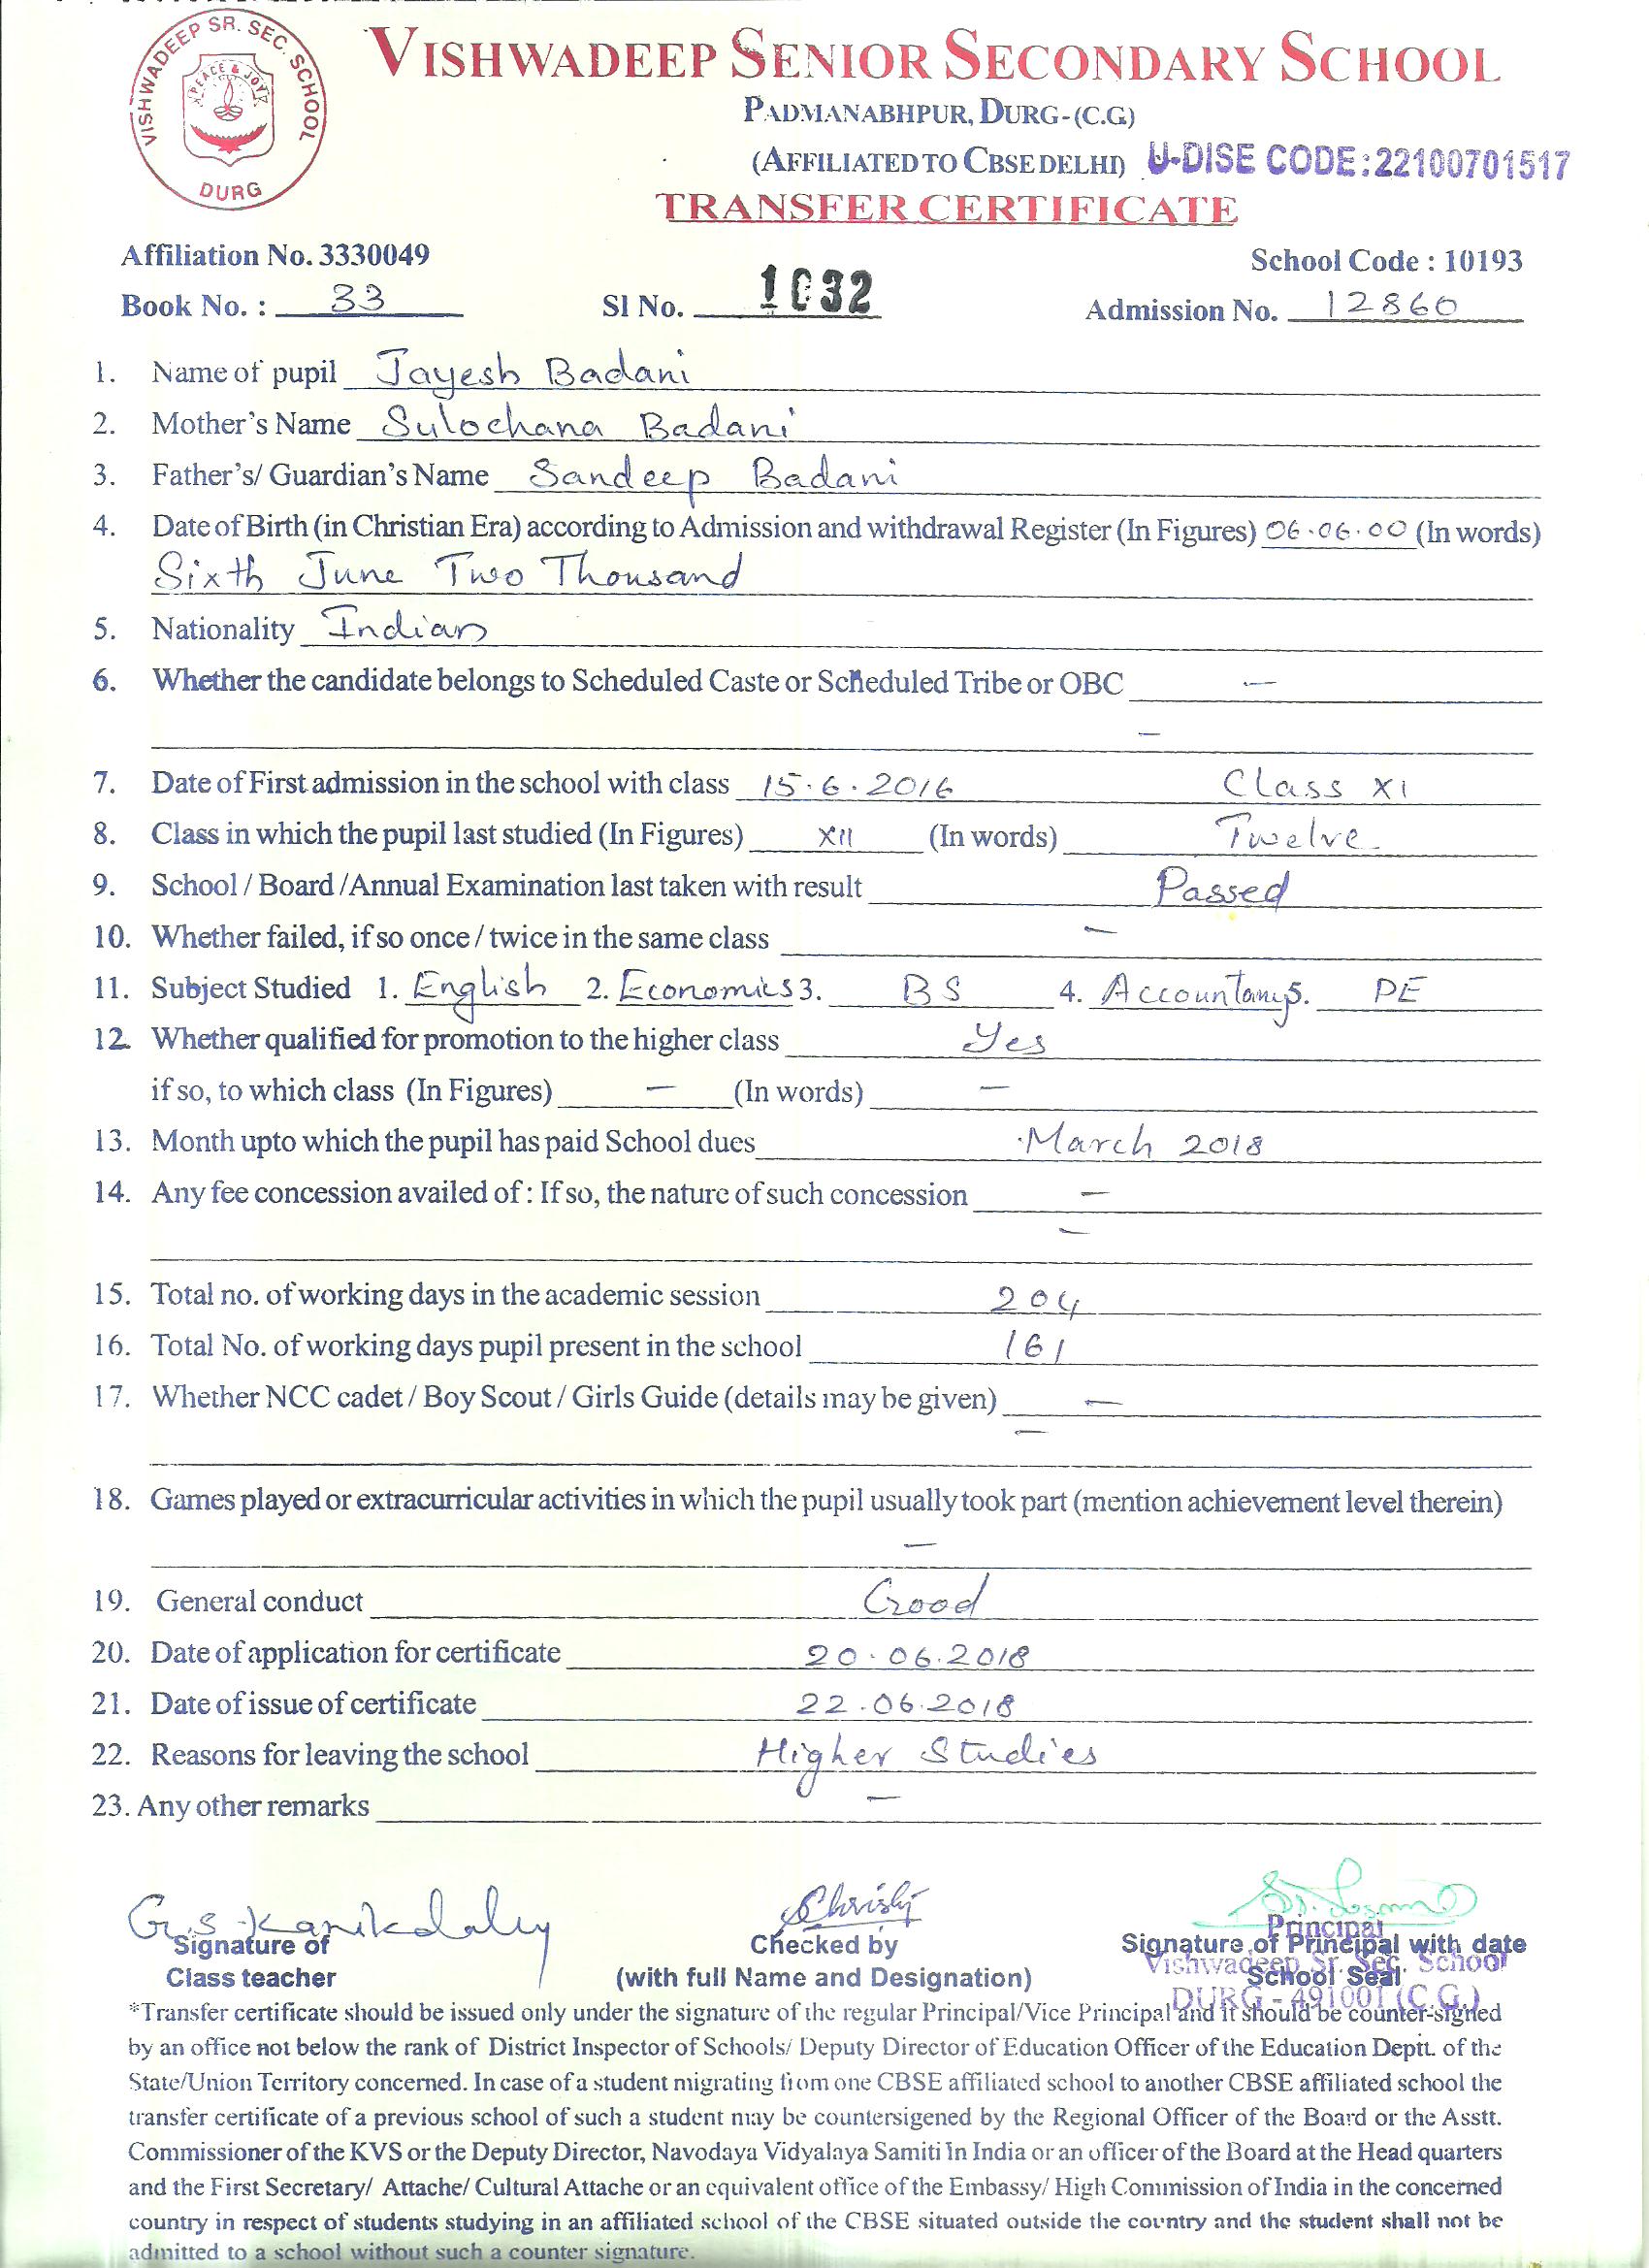 VISHWADEEP SR. SEC. SCHOOL
PEACE & JOY
DURG
VISHWADEEP SENIOR SECONDARY SCHOOL
PADMANABHPUR, DURG-(C.G)
(AFFILIATED TO CBSE DELHI) U-DISE CODE:22100701517
TRANSFER CERTIFICATE
Affiliation No. 3330049 School Code : 10193
Book No. : 33 Sl No. 1032 Admission No. 12860
1. Name of pupil Jayesh Badani
2. Mother's Name Sulochana Badani
3. Father's/ Guardian's Name Sandeep Badani
4. Date of Birth (in Christian Era) according to Admission and withdrawal Register (In Figures) 06.06.00 (In words)
Sixth June Two Thousand
5. Nationality Indian
6. Whether the candidate belongs to Scheduled Caste or Scheduled Tribe or OBC —
—
7. Date of First admission in the school with class 15.6.2016 Class XI
8. Class in which the pupil last studied (In Figures) XII (In words) Twelve
9. School / Board /Annual Examination last taken with result Passed
10. Whether failed, if so once / twice in the same class —
11. Subject Studied 1. English 2. Economics 3. BS 4. Accountancy 5. PE
12. Whether qualified for promotion to the higher class Yes
if so, to which class (In Figures) — (In words) —
13. Month upto which the pupil has paid School dues March 2018
14. Any fee concession availed of : If so, the nature of such concession —
—
15. Total no. of working days in the academic session 204
16. Total No. of working days pupil present in the school 161
17. Whether NCC cadet / Boy Scout / Girls Guide (details may be given) —
—
18. Games played or extracurricular activities in which the pupil usually took part (mention achievement level therein)
—
19. General conduct Good
20. Date of application for certificate 20.06.2018
21. Date of issue of certificate 22.06.2018
22. Reasons for leaving the school Higher Studies
23. Any other remarks —
Principal
Signature of Checked by Signature of Principal with date
Vishwadeep Sr. Sec. School
Class teacher (with full Name and Designation) School Seal
DURG - 491001 (C.G.)
*Transfer certificate should be issued only under the signature of the regular Principal/Vice Principal and it should be counter-signed
by an office not below the rank of District Inspector of Schools/ Deputy Director of Education Officer of the Education Deptt. of the
State/Union Territory concerned. In case of a student migrating from one CBSE affiliated school to another CBSE affiliated school the
transfer certificate of a previous school of such a student may be countersigened by the Regional Officer of the Board or the Asstt.
Commissioner of the KVS or the Deputy Director, Navodaya Vidyalaya Samiti in India or an officer of the Board at the Head quarters
and the First Secretary/ Attache/ Cultural Attache or an equivalent office of the Embassy/ High Commission of India in the concerned
country in respect of students studying in an affiliated school of the CBSE situated outside the country and the student shall not be
admitted to a school without such a counter signature.